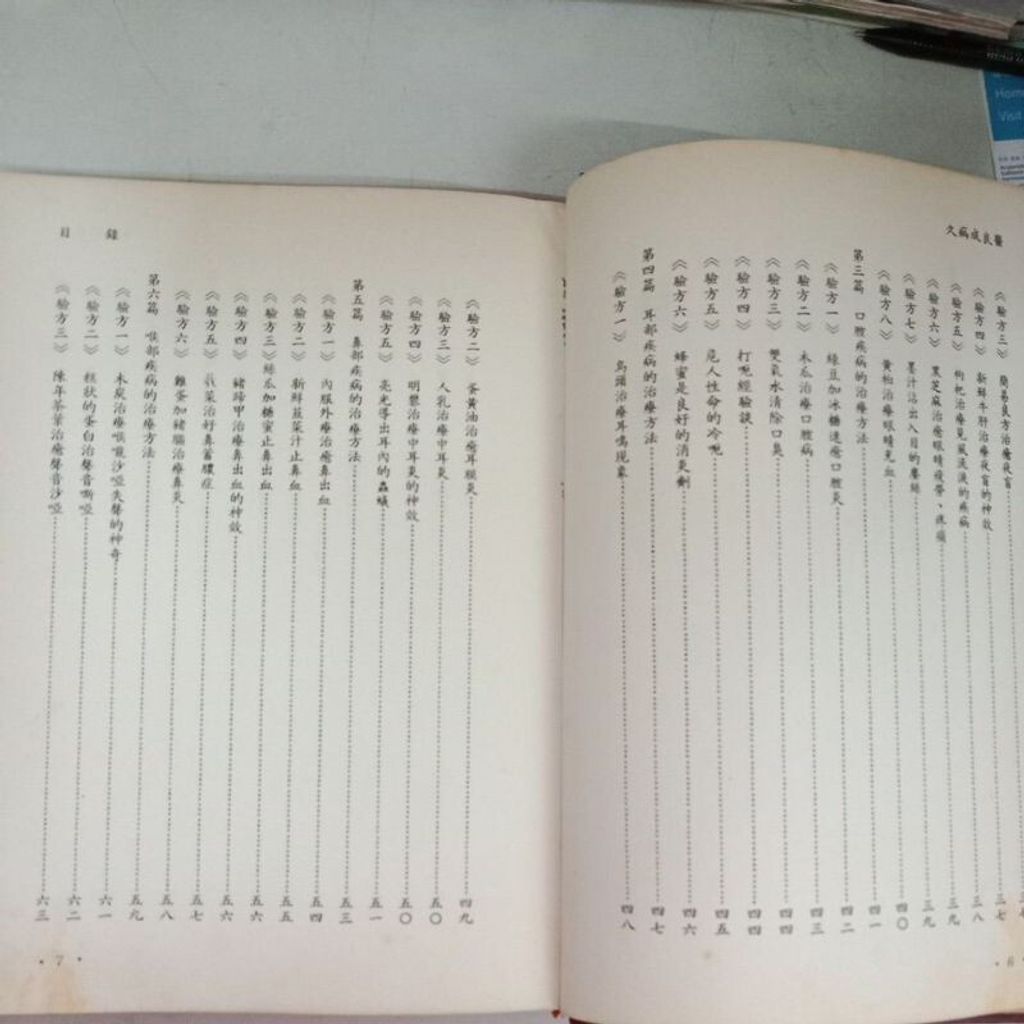 久病成良醫
《驗方三》 簡易良方治癒夜盲 三七
《驗方四》 新鮮牛肝治療夜盲的神效 三八
《驗方五》 枸杞治療見風流淚的疾病 三九
《驗方六》 黑芝麻治癒眼睛疲勞、疼痛 三九
《驗方七》 墨汁沾出入目的塵絲 四〇
《驗方八》 黃柏治療眼睛充血 四一
第三篇 口腔疾病的治療方法
《驗方一》 綠豆加冰糖速癒口腔炎 四二
《驗方二》 木瓜治療口腔病 四三
《驗方三》 雙氧水清除口臭 四四
《驗方四》 打呃經驗談 四四
《驗方五》 危人性命的冷呃 四五
《驗方六》 蜂蜜是良好的消炎劑 四六
第四篇 耳部疾病的治療方法 四七
《驗方一》 烏頭治療耳鳴現象 四八
·6
目錄
《驗方二》 蛋黃油治癒耳膜炎 四九
《驗方三》 人乳治療中耳炎 五〇
《驗方四》 明礬治療中耳炎的神效 五〇
《驗方五》 亮光導出耳內的蟲蟻 五一
第五篇 鼻部疾病的治療方法 五三
《驗方一》 內服外療治癒鼻出血 五四
《驗方二》 新鮮韮菜汁止鼻血 五五
《驗方三》絲瓜加糖蜜止鼻出血 五六
《驗方四》 豬蹄甲治療鼻出血的神效 五六
《驗方五》 莪菜治好鼻蓄膿症 五七
《驗方六》 雞蛋加豬腦治療鼻炎 五八
第六篇 喉部疾病的治療方法 五九
《驗方一》 木炭治療喉嚨沙啞失聲的神奇 六一
《驗方二》 糕狀的蛋白治聲音嘶啞 六二
《驗方三》 陳年茶葉治癒聲音沙啞 六三
·7·
Home
Visit